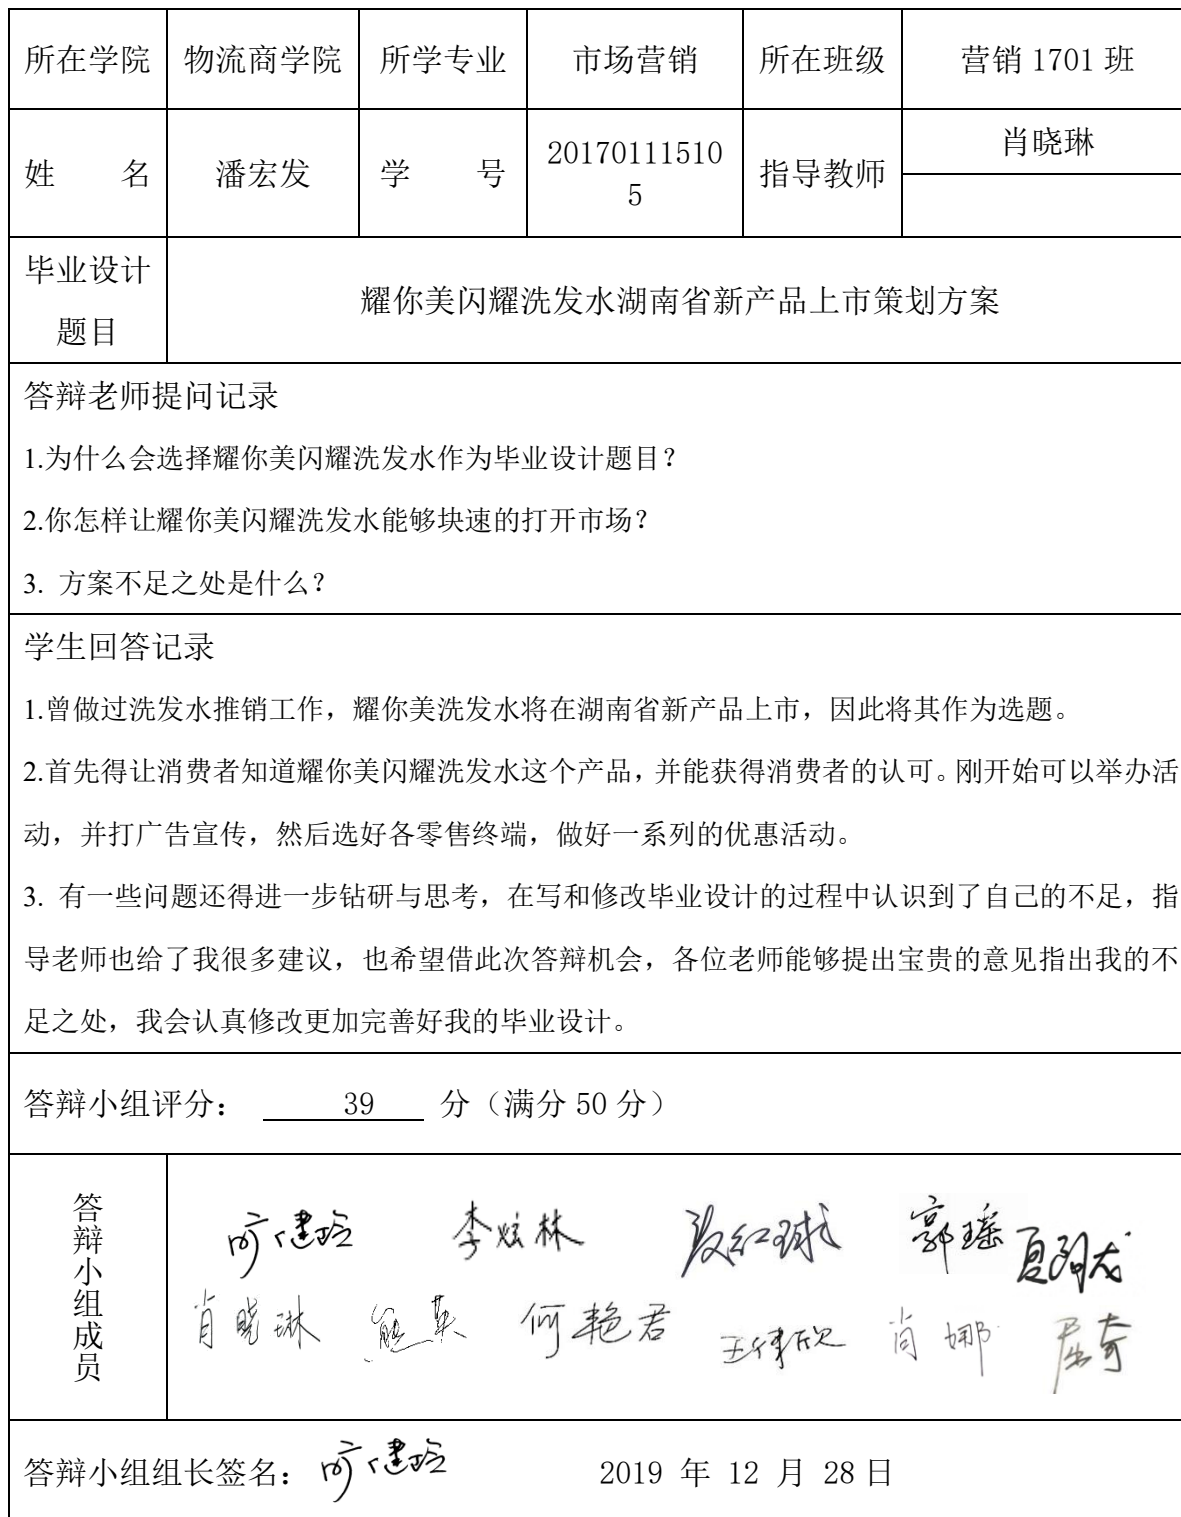 所在学院 物流商学院 所学专业 市场营销 所在班级 营销 1701 班
姓 名 潘宏发 学 号 20170111510 指导教师 肖晓琳
5
毕业设计
题目
耀你美闪耀洗发水湖南省新产品上市策划方案
答辩老师提问记录
1.为什么会选择耀你美闪耀洗发水作为毕业设计题目？
2.你怎样让耀你美闪耀洗发水能够块速的打开市场？
3. 方案不足之处是什么？
学生回答记录
1.曾做过洗发水推销工作，耀你美洗发水将在湖南省新产品上市，因此将其作为选题。
2.首先得让消费者知道耀你美闪耀洗发水这个产品，并能获得消费者的认可。刚开始可以举办活
动，并打广告宣传，然后选好各零售终端，做好一系列的优惠活动。
3. 有一些问题还得进一步钻研与思考，在写和修改毕业设计的过程中认识到了自己的不足，指
导老师也给了我很多建议，也希望借此次答辩机会，各位老师能够提出宝贵的意见指出我的不
足之处，我会认真修改更加完善好我的毕业设计。
答辩小组评分： 39 分（满分 50 分）
答辩小组成员
李炫林 郭瑶
肖晓琳 熊英 何艳君 肖娜 屈奇
答辩小组组长签名： 2019 年 12 月 28 日